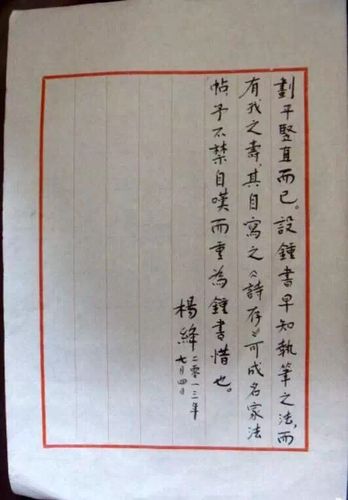 劃平豎直而已。設鍾書早知執筆之法，而
有我之壽，其自寫之《詩存》可成名家法
帖，予不禁自嘆而重為鍾書惜也。
楊絳 二零一三年
七月四日